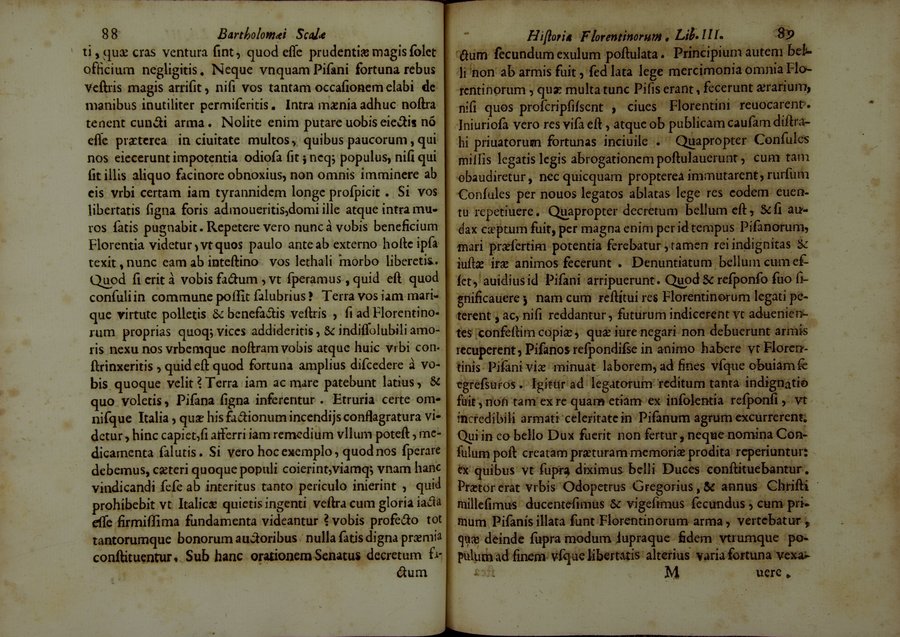 88 Bartholomæi Scalæ
ti, quæ cras ventura ſint, quod eſſe prudentiæ magis ſolet
officium negligitis. Neque vnquam Piſani fortuna rebus
veſtris magis arriſit, niſi vos tantam occaſionem elabi de
manibus inutiliter permiſeritis. Intra mænia adhuc noſtra
tenent cuncti arma. Nolite enim putare uobis eiectis nõ
eſſe præterea in ciuitate multos, quibus paucorum, qui
nos eiecerunt impotentia odioſa ſit; neq; populus, niſi qui
ſit illis aliquo facinore obnoxius, non omnis imminere ab
eis vrbi certam iam tyrannidem longe proſpicit. Si vos
libertatis ſigna foris admoueritis, domi ille atque intra mu-
ros ſatis pugnabit. Repetere vero nunc à vobis beneficium
Florentia videtur, vt quos paulo ante ab externo hoſte ipſa
texit, nunc eam ab inteſtino vos lethali morbo liberetis.
Quod ſi erit à vobis factum, vt ſperamus, quid eſt quod
conſuli in commune poſſit ſalubrius? Terra vos iam mari-
que virtute polletis & benefactis veſtris, ſi ad Florentino-
rum proprias quoq; vices addideritis, & indiſſolubili amo-
ris nexu nos vrbemque noſtram vobis atque huic vrbi con-
ſtrinxeritis, quid eſt quod fortuna amplius diſcedere à vo-
bis quoque velit? Terra iam ac mare patebunt latius, &
quo voletis, Piſana ſigna inferentur. Etruria certe om-
niſque Italia, quæ his factionum incendijs conflagratura vi-
detur, hinc capiet, ſi afferri iam remedium vllum poteſt, me-
dicamenta ſalutis. Si vero hoc exemplo, quod nos ſperare
debemus, cæteri quoque populi coierint, viamq; vnam hanc
vindicandi ſeſe ab interitus tanto periculo inierint, quid
prohibebit vt Italicæ quietis ingenti veſtra cum gloria iacta
eſſe firmiſſima fundamenta videantur? vobis profecto tot
tantorumque bonorum auctoribus nulla ſatis digna præmia
conſtituentur. Sub hanc orationem Senatus decretum fa-
ctum
Hiſtoriæ Florentinorum. Lib. III. 89
ctum ſecundum exulum poſtulata. Principium autem bel-
li non ab armis fuit, ſed lata lege mercimonia omnia Flo-
rentinorum, quæ multa tunc Piſis erant, fecerunt ærarium,
niſi quos proſcripſiſſent, ciues Florentini reuocarent.
Iniurioſa vero res viſa eſt, atque ob publicam cauſam diſtra-
hi priuatorum fortunas inciuile. Quapropter Conſules
miſſis legatis legis abrogationem poſtulauerunt, cum tam
obaudiretur, nec quicquam propterea immutarent, rurſum
Conſules per nouos legatos ablatas lege res eodem euen-
tu repetiuere. Quapropter decretum bellum eſt, & ſi au-
dax cæptum fuit, per magna enim per id tempus Piſanorum,
mari præſertim potentia ferebatur, tamen rei indignitas &
iuſtæ iræ animos fecerunt. Denuntiatum bellum cum eſ-
ſet, auidius id Piſani arripuerunt. Quod & reſponſo ſuo ſi-
gnificauere; nam cum reſtitui res Florentinorum legati pe-
terent, ac, niſi reddantur, futurum indicerent vt aduenien-
tes confeſtim copiæ, quæ iure negari non debuerunt armis
recuperent, Piſanos reſpondiſſe in animo habere vt Floren-
tinis Piſani viæ minuat laborem, ad fines vſque obuiam ſe
egreſſuros. Igitur ad legatorum reditum tanta indignatio
fuit, non tam ex re quam etiam ex inſolentia reſponſi, vt
incredibili armati celeritate in Piſanum agrum excurrerent.
Qui in eo bello Dux fuerit non fertur, neque nomina Con-
ſulum poſt creatam præturam memoriæ prodita reperiuntur:
ex quibus vt ſupra diximus belli Duces conſtituebantur.
Prætor erat vrbis Odopetrus Gregorius, & annus Chriſti
milleſimus ducenteſimus & vigeſimus ſecundus, cum pri-
mum Piſanis illata ſunt Florentinorum arma, vertebatur,
quæ deinde ſupra modum ſupraque fidem vtrumque po-
pulum ad finem vſque libertatis alterius varia fortuna vexa-
M uere.